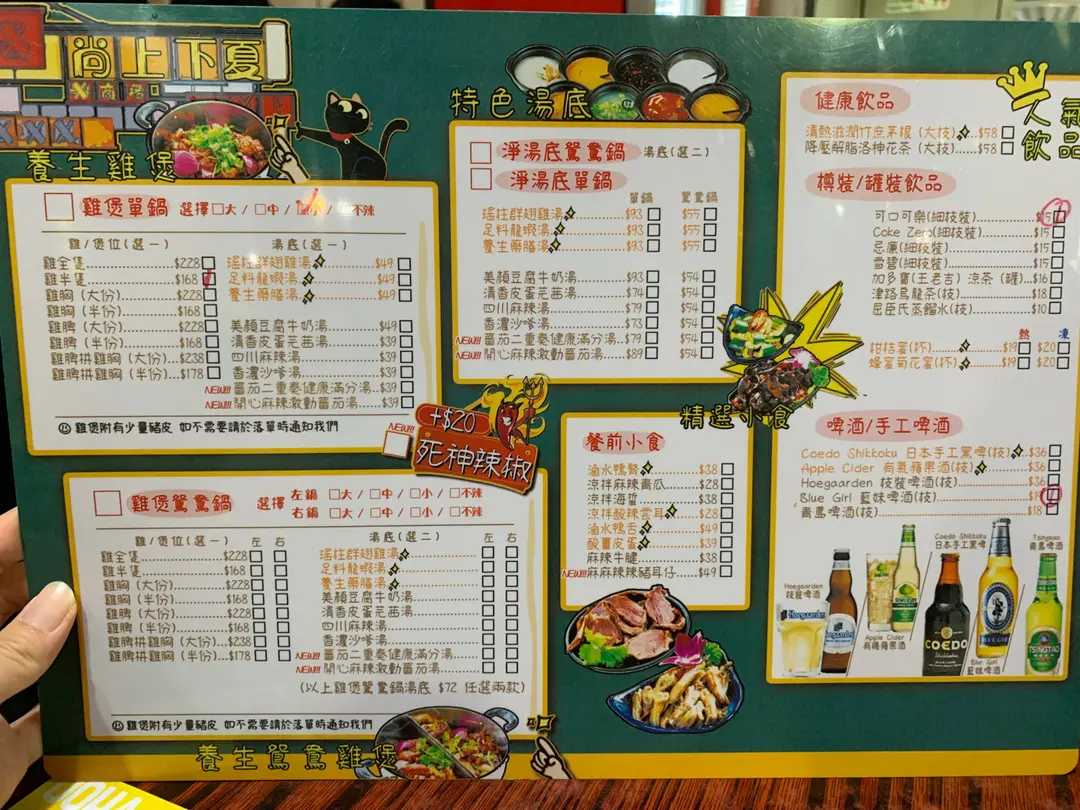 尚上下夏
養生雞煲
雞煲單鍋 選擇 □大 / □中 / □小 / □不辣
雞/煲位(選一) 湯底(選一)
雞全隻 $228
雞半隻 $168
雞胸 (大份) $228
雞胸 (半份) $168
雞脾 (大份) $228
雞脾 (半份) $168
雞脾拼雞胸 (大份) $238
雞脾拼雞胸 (半份) $178
瑤柱群翅雞湯 $49
足料龍蝦湯 $49
養生藥膳湯 $49
美顏豆腐牛奶湯 $49
清香皮蛋芫茜湯 $39
四川麻辣湯 $39
香濃沙爹湯 $39
NEW!!! 蕃茄二重奏健康滿分湯 $39
NEW!!! 開心麻辣激動蕃茄湯 $39
雞煲附有少量豬皮 如不需要請於落單時通知我們
NEW!!! +$20
死神辣椒
雞煲鴛鴦鍋 選擇
左鍋 □大 / □中 / □小 / □不辣
右鍋 □大 / □中 / □小 / □不辣
雞/煲位(選一) 左 右 湯底(選二) 左 右
雞全隻 $228
雞半隻 $168
雞胸 (大份) $228
雞胸 (半份) $168
雞脾 (大份) $228
雞脾 (半份) $168
雞脾拼雞胸 (大份) $238
雞脾拼雞胸 (半份) $178
瑤柱群翅雞湯
足料龍蝦湯
養生藥膳湯
美顏豆腐牛奶湯
清香皮蛋芫茜湯
四川麻辣湯
香濃沙爹湯
NEW!!! 蕃茄二重奏健康滿分湯
NEW!!! 開心麻辣激動蕃茄湯
(以上雞煲鴛鴦鍋湯底 $72 任選兩款)
雞煲附有少量豬皮 如不需要請於落單時通知我們
養生鴛鴦雞煲
特色湯底
淨湯底鴛鴦鍋 湯底(選二)
淨湯底單鍋
單鍋 鴛鴦鍋
瑤柱群翅雞湯 $93 $55
足料龍蝦湯 $93 $55
養生藥膳湯 $93 $55
美顏豆腐牛奶湯 $93 $54
清香皮蛋芫茜湯 $74 $54
四川麻辣湯 $79 $54
香濃沙爹湯 $73 $54
NEW!!! 蕃茄二重奏健康滿分湯 $79 $54
NEW!!! 開心麻辣激動蕃茄湯 $89 $54
精選小食
餐前小食
滷水鴨腎 $38
涼拌麻辣青瓜 $28
涼拌海蜇 $38
涼拌酸辣雲耳 $28
滷水鴨舌 $49
酸薑皮蛋 $39
麻辣牛腱 $38
NEW!!! 麻麻辣辣豬耳仔 $49
人氣飲品
健康飲品
清熱滋潤竹庶茅根 (大枝) $58
降壓解脂洛神花茶 (大枝) $58
樽裝/罐裝飲品
可口可樂(細枝裝) $15
Coke Zero(細枝裝) $15
忌廉(細枝裝) $15
雪碧(細枝裝) $15
加多寶(王老吉) 涼茶 (罐) $16
津路烏龍茶(枝) $18
屈臣氏蒸餾水(枝) $10
熱 凍
柑桔蜜(杯) $19 $20
蜂蜜菊花蜜(杯) $19 $20
啤酒/手工啤酒
Coedo Shikkoku 日本手工黑啤(枝) $36
Apple Cider 有氣蘋果酒(枝) $36
Hoegaarden 枝裝啤酒(枝) $36
Blue Girl 藍妹啤酒(枝)
青島啤酒(枝) $18
Hoegaarden
枝裝啤酒
Apple Cider
有機蘋果酒
Coedo Shikkoku
日本手工黑啤
Blue Girl
藍妹啤酒
Tsingtao
青島啤酒
Hoegaarden
COEDO
BLUE GIRL
TSINGTAO